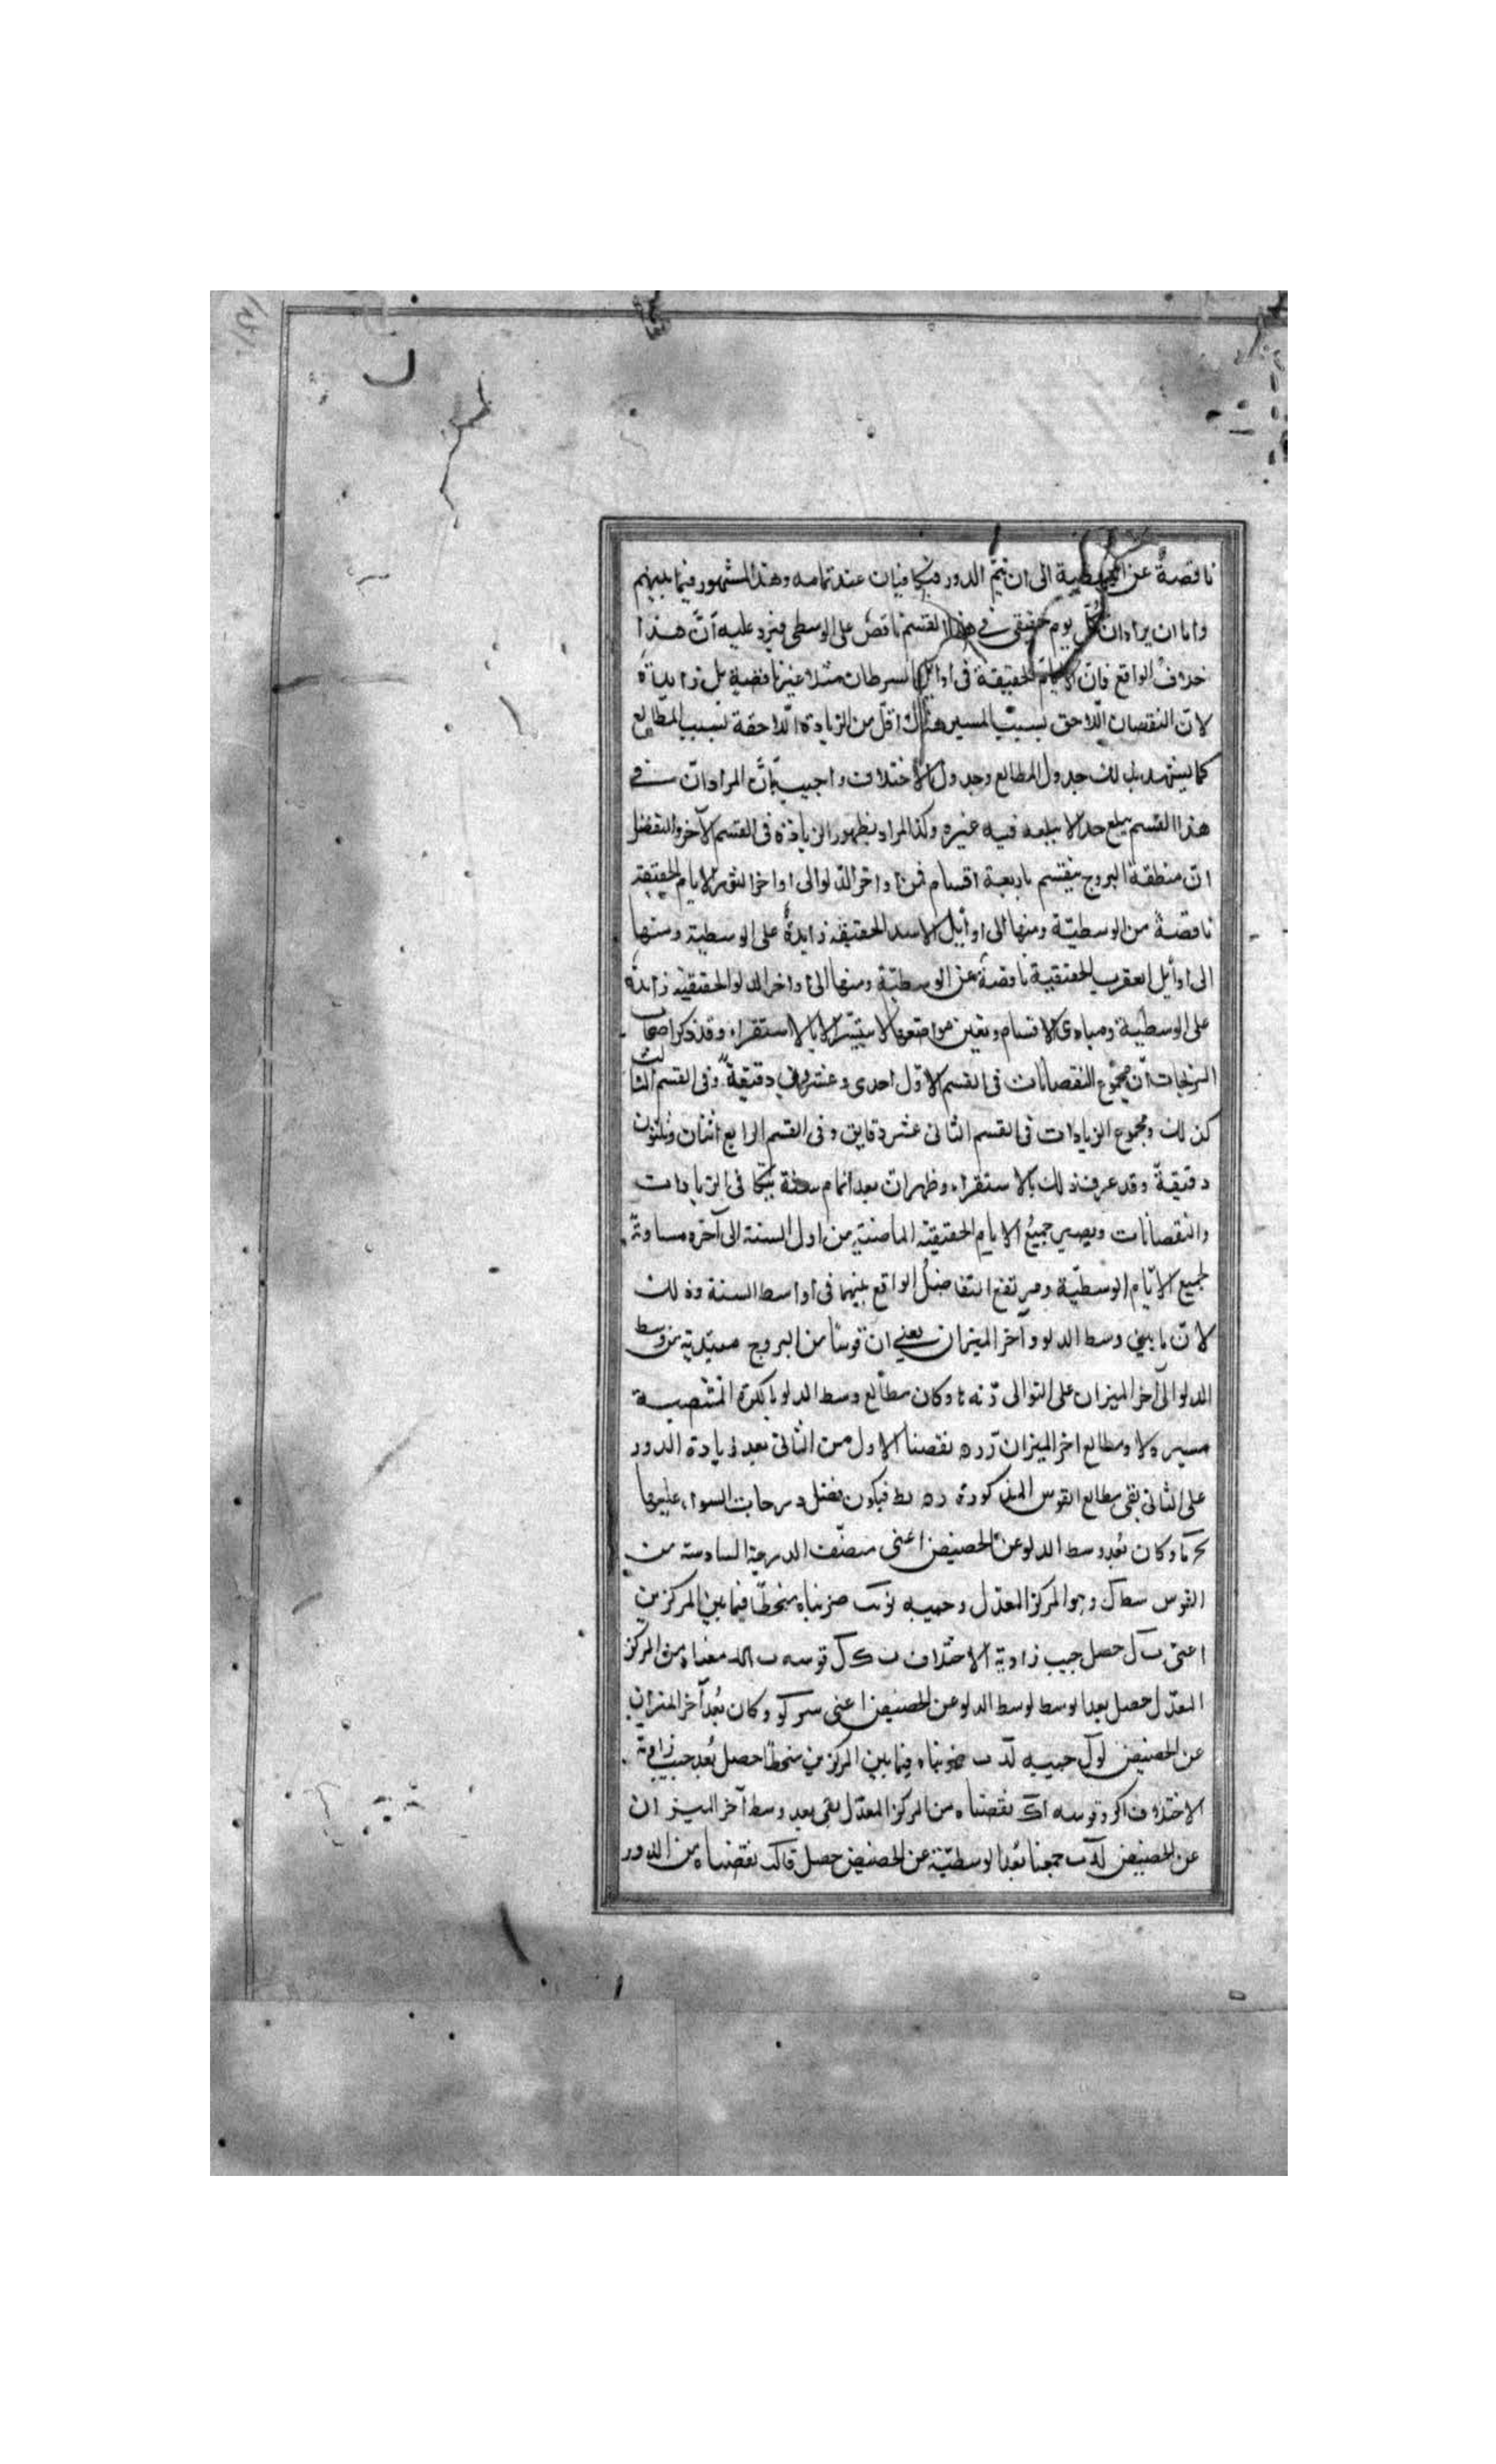 ناقصةٌ عن الوسطية الى ان يتم الدور فيتكافيان عند تمامه وهذا المشهور فيما بينهم
واما ان يراد ان كل يوم حقيقى فى هذا القسم ناقص على الوسطى فيرد عليه انّ هذا
خلاف الواقع فانّ الايام الحقيقة فى اوايل السرطان مثلا غير ناقصة بل زايدة
لانّ النقصان اللاحق بسبب المسير هناك اقلّ من الزيادة اللاحقة بسبب المطالع
كما يشهد بذلك جدول المطالع وجدول الاختلاف واجيب بانّ المراد انّ فى
هذا القسم يبلغ حدا لا يبلغه فيه غيره وكذا المراد بظهور الزيادة فى القسم الآخر والتفضل
انّ منطقة البروج ينقسم باربعة اقسام فمن اواخر الدلو الى اواخر الثور الايام الحقيقة
ناقصة من الوسطيّة ومنها الى اوائل الاسد الحقيقة زايدةٌ على الوسطية ومنها
الى اوائل العقرب الحقيقية ناقصة عن الوسطيّة ومنها الى اواخر الدلو الحقيقية زايدة
على الوسطية ومبادى الاقسام وتعين مواضعها لا يتيسّر الا بالاستقراء وقد ذكر اصحاب
الزيجات انّ مجموع النقصانات فى القسم الاول احدى وعشرون دقيقةً وفى القسم الثالث
كذلك ومجموع الزيادات فى القسم الثانى عشر دقايق وفى القسم الرابع اثنان وثلثون
دقيقةً وقد عرف ذلك بالاستقراء وظهر ان بعد اتمام سنة يتكافى الزيادات
والنقصانات ويصير جميعُ الايام الحقيقية الماضية من اول السنة الى آخره مساوية
لجميع الايّام الوسطيّة ويرتفع التفاضلُ الواقع بينهما فى اواسط السنة وذلك
لانّ ما بين وسط الدلو وآخر الميزان يعنى ان قوسًا من البروج مبتدية من وسط
الدلو الى آخر الميزان على التوالى وكان مطالع وسط الدلو بالكرة المنتصبة
ومطالع اخر الميزان نقصنا الاول من الثانى بعد زيادة الدور
على الثانى بقى مطالع القوس المذكورة فيكون فضل درجات السواء عليها
وكان بُعد وسط الدلو عن الحضيض اعنى منصّف الدرجة السادسة من
القوس وهو المركز المعدّل وجيبه ضربناه منحطّا فيما بين المركزين
اعنى حصل جيب زاوية الاختلاف قوسه من المركز
المعدّل حصل بعد الوسط لوسط الدلو عن الحضيض اعنى وكان بُعد آخر الميزان
عن الحضيض جيبه ضربناه فيما بين المركزين منحطا حصل بُعد جيب زاوية
الاختلاف وقوسه نقصناه من المركز المعدّل بقى بعد وسط آخر الميزان
عن الحضيض جمعنا بُعد الوسطيّة عن الحضيض حصل نقصناه من الدور